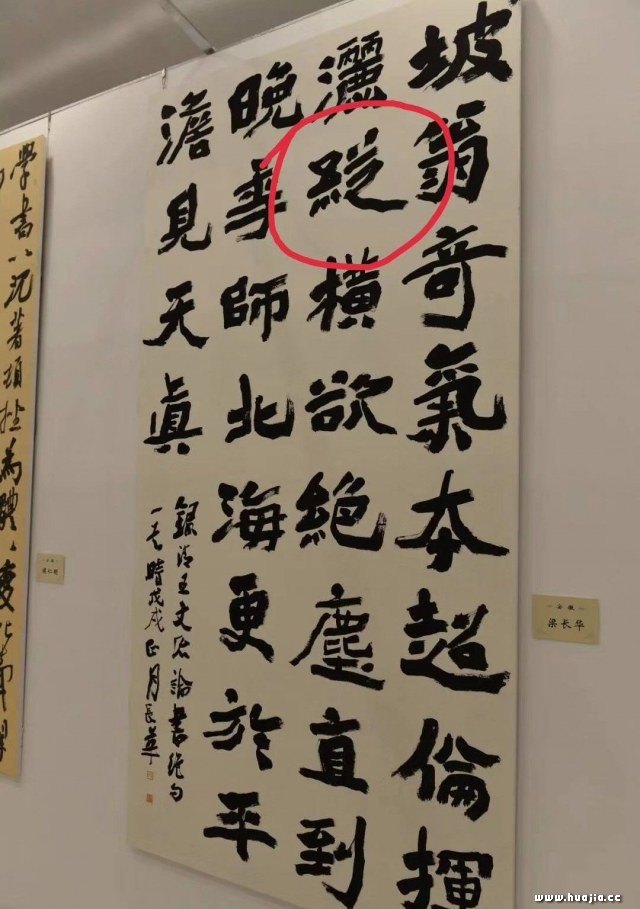 坡翁奇氣夲超倫揮
灑縱橫欲絶塵直到
晚年師北海更於平
澹見天眞
錄清王文治論書絕句
一首時戊戌正月長華
安徽
梁长华
學書以沉著頓挫為體以變化牽
www.huajia.cc